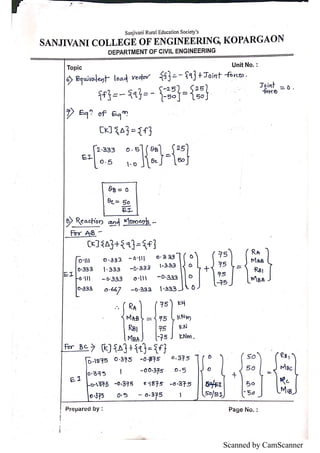 Sanjivani Rural Education Society's
SANJIVANI COLLEGE OF ENGINEERING, KOPARGAON
DEPARTMENT OF CIVIL ENGINEERING
Topic Unit No. :
6) Equivalent load vector {f} = - {q} + Joint force.
{f} = - {q} = - {-25 -50} = {25 50} Joint force = 0.
7) Eqn of Eqm
[K] {Δ} = {f}
EI [2.333 0.5 0.5 1.0] {θB θC} = {25 50}
θB = 0
θC = 50/EI
8) Reaction and Moments -
For AB -
[K] {Δ} + {q} = {f}
0.111 0.333 -0.111 0.333 0 75 RA
0.333 1.333 -0.333 1.333 0 75 MAB
EI -0.111 -0.333 0.111 -0.333 0 + 75 = RB1
0.333 0.667 -0.333 1.333 0 -75 MBA
∴ RA 75 KN
MAB = 75 KNm
RB1 75 KN
MBA -75 KNm.
For BC > [K] {Δ} + {q} = {f}
0.1875 0.375 -0.1875 0.375 0 50
0.375 1 -0.375 0.5 0 50 MBC
EI -0.1875 -0.375 0.1875 -0.375 + 50 = RC
0.375 0.5 -0.375 1 50/EI -50 MCB
Prepared by : Page No. :
Scanned by CamScanner